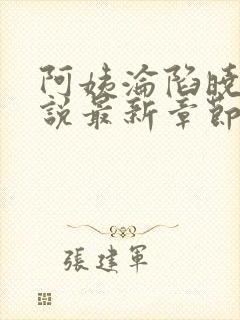 阿姨淪陷曉
說最新章節
張建軍